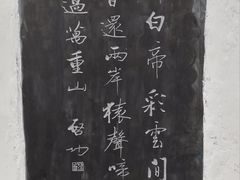 白帝彩雲間
日還兩岸猿聲啼
過萬重山 啓功